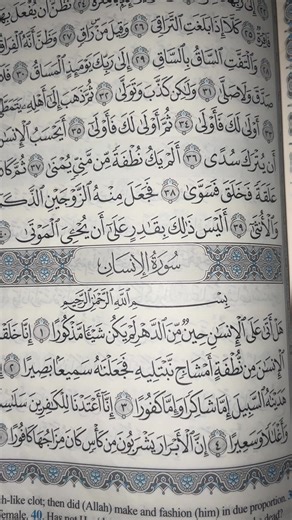 تَظُنُّ أَن يُفْعَلَ بِهَا
فَاقِرَةٌ ٢٥ كَلَّآ إِذَا بَلَغَتِ ٱلتَّرَاقِيَ ٢٦ وَقِيلَ مَنْ رَاقٍ ٢٧ وَظَنَّ أَنَّهُ ٱلْفِرَاقُ
وَٱلْتَفَّتِ ٱلسَّاقُ بِٱلسَّاقِ ٢٩ إِلَىٰ رَبِّكَ يَوْمَئِذٍ ٱلْمَسَاقُ ٣٠ فَلَا
صَدَّقَ وَلَا صَلَّىٰ ٣١ وَلَٰكِن كَذَّبَ وَتَوَلَّىٰ ٣٢ ثُمَّ ذَهَبَ إِلَىٰٓ أَهْلِهِۦ يَتَمَطَّىٰٓ
أَوْلَىٰ لَكَ فَأَوْلَىٰ ٣٤ ثُمَّ أَوْلَىٰ لَكَ فَأَوْلَىٰٓ ٣٥ أَيَحْسَبُ ٱلْإِنسَٰنُ
أَن يُتْرَكَ سُدًى ٣٦ أَلَمْ يَكُ نُطْفَةً مِّن مَّنِىٍّ يُمْنَىٰ ٣٧ ثُمَّ كَانَ
عَلَقَةً فَخَلَقَ فَسَوَّىٰ ٣٨ فَجَعَلَ مِنْهُ ٱلزَّوْجَيْنِ ٱلذَّكَرَ
وَٱلْأُنثَىٰٓ ٣٩ أَلَيْسَ ذَٰلِكَ بِقَٰدِرٍ عَلَىٰٓ أَن يُحْۦِىَ ٱلْمَوْتَىٰ
سُورَةُ الإِنسَان
بِسْمِ ٱللَّهِ ٱلرَّحْمَٰنِ ٱلرَّحِيمِ
هَلْ أَتَىٰ عَلَى ٱلْإِنسَٰنِ حِينٌ مِّنَ ٱلدَّهْرِ لَمْ يَكُن شَيْـًٔا مَّذْكُورًا ١ إِنَّا خَلَقْنَا
ٱلْإِنسَٰنَ مِن نُّطْفَةٍ أَمْشَاجٍ نَّبْتَلِيهِ فَجَعَلْنَٰهُ سَمِيعًۢا بَصِيرًا ٢
هَدَيْنَٰهُ ٱلسَّبِيلَ إِمَّا شَاكِرًا وَإِمَّا كَفُورًا ٣ إِنَّآ أَعْتَدْنَا لِلْكَٰفِرِينَ سَلَٰسِلَا۟
وَأَغْلَٰلًا وَسَعِيرًا ٤ إِنَّ ٱلْأَبْرَارَ يَشْرَبُونَ مِن كَأْسٍ كَانَ مِزَاجُهَا كَافُورًا
h-like clot; then did (Allah) make and fashion (him) in due proportion.
female. 40. Has not dead?